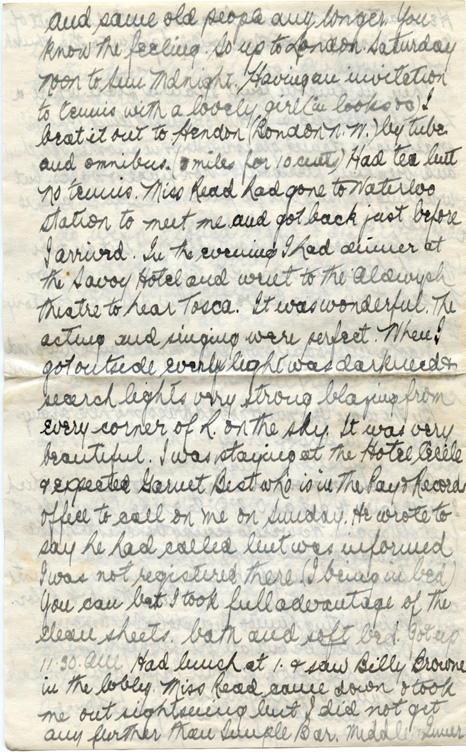 and same old people any longer. You
know the feeling. So up to London Saturday
noon to Sun Midnight. Having an invitation
to tennis with a lovely girl (in looks so) I
beat it out to Hendon (London N.W.) by tube
and omnibus. ( miles for 10 cents) Had tea but
no tennis. Miss Read had gone to Waterloo
station to meet me and got back just before
I arrived. In the evening I had dinner at
the Savoy Hotel and went to the Aldwych
theatre to hear Tosca. It was wonderful. The
acting and singing were perfect. When I
got outside every light was darkened &
search lights very strong blazing from
every corner of L. on the sky. It was very
beautiful. I was staying at the Hotel Cecile
& expected Garnet Best who is in the Pay & Records
office to call on me on Sunday. He wrote to
say he had called but was informed
I was not registered there. (I being in bed)
You can bet I took full advantage of the
clean sheets. bath and soft bed. Got up
11.30. AM. Had lunch at 1. & saw Billy Browne
in the lobby. Miss Read came down & took
me out sightseeing but I did not get
any further than Temple Bar. Middle & Inner